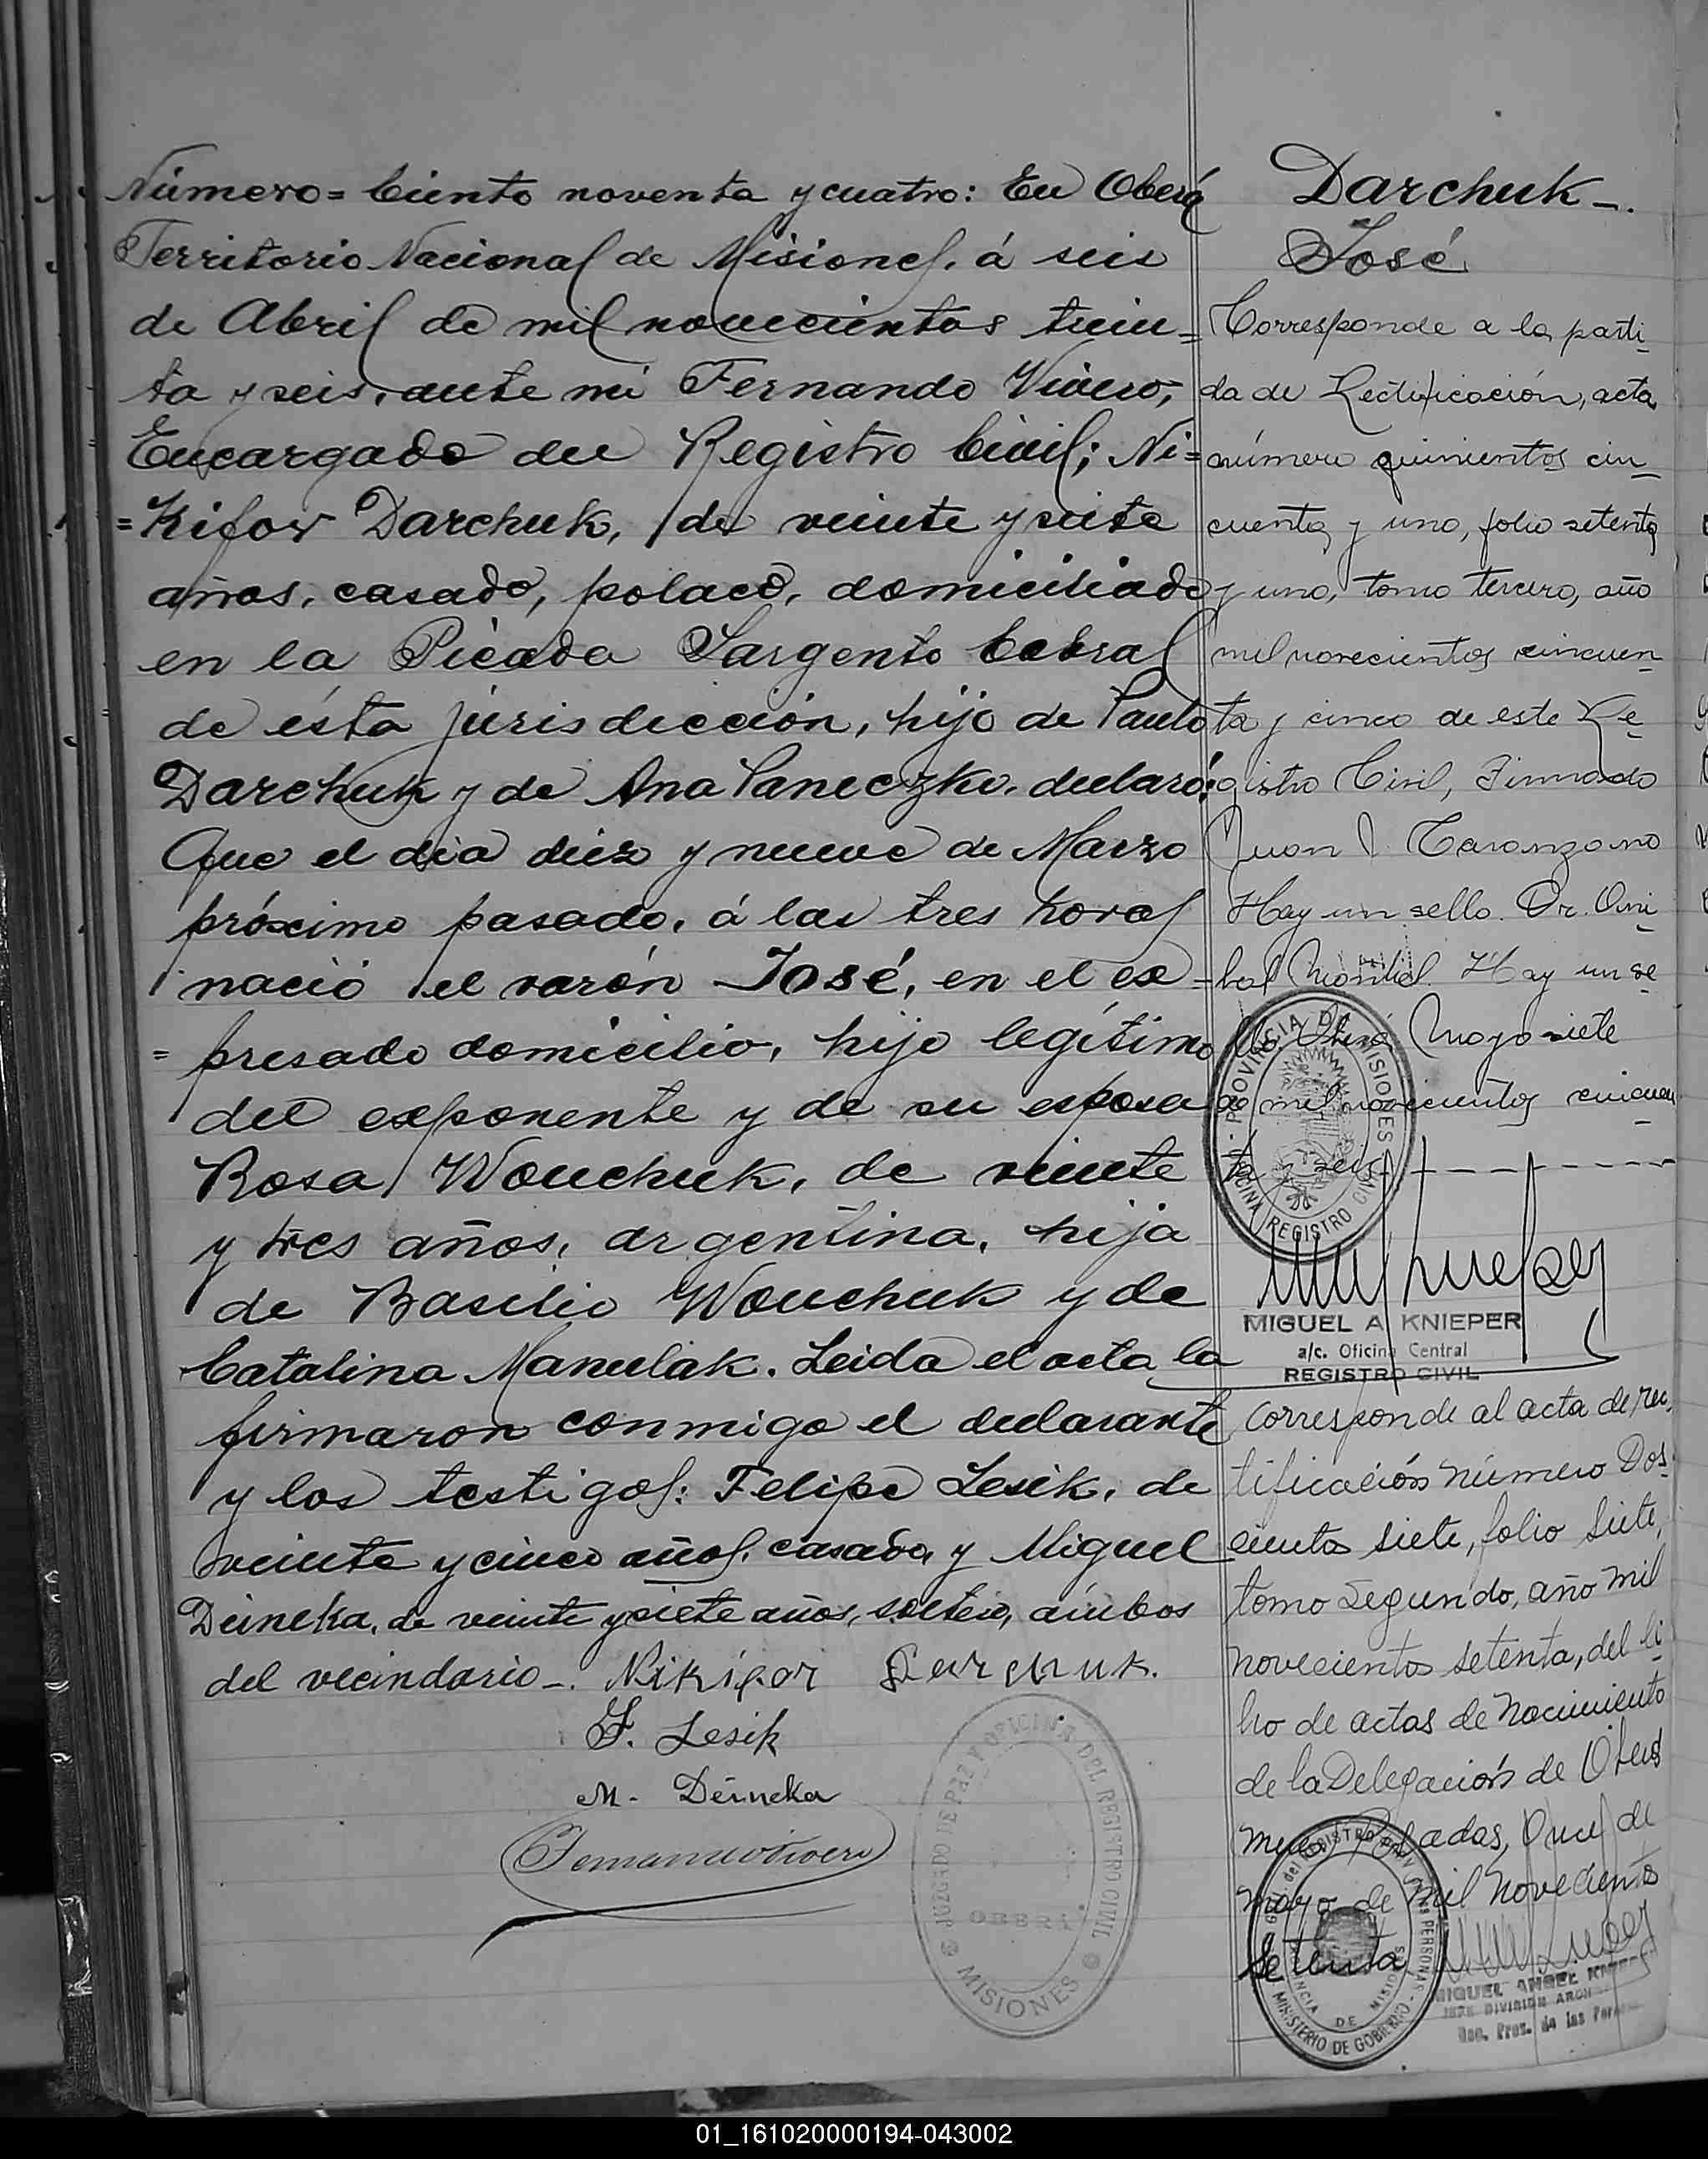 Número= Ciento noventa y cuatro: En Oberá
Territorio Nacional de Misiones, á seis
de Abril de mil novecientos trein=
ta y seis, ante mi Fernando Vivero,
Encargado del Registro Civil; Ni=
=Kifor Darchuk, de veinte y siete
años, casado, polaco, domiciliado
en la Picada Sargento Cabral
de ésta jurisdicción, hijo de Paulo
Darchuk y de Ana Paneczko, declaró:
Que el dia diez y nueve de Marzo
próximo pasado, á las tres horas
nació el varón José, en el ex=
=presado domicilio, hijo legítimo
del exponente y de su esposa
Rosa Wouchuk, de veinte
y tres años, argentina, hija
de Basilio Wouchuk y de
Catalina Manulak. Leida el acta la
firmaron conmigo el declarante
y los testigos: Felipe Lesik, de
veinte y cinco años, casado, y Miguel
Deineka, de veinte y siete años, soltero, ámbos
del vecindario_.
Nikifor Darchuk.
F. Lesik
M. Deineka
JUZGADO DE PAZ Y OFICINA DEL REGISTRO CIVIL
OBERÁ
MISIONES
Darchuk_.
José
Corresponde a la parti
da de Rectificación, acta
número quinientos cin
cuenta y uno, folio setenta
y uno, tomo tercero, año
mil novecientos cincuen
ta y cinco de este Re
gistro Civil, Firmado
Juan J. Taranzano
Hay un sello. Dr. Aní
bal Hay un se
llo. Oberá Mayo siete
de mil novecientos cincuen
ta y seis - - - - - - - -
PROVINCIA DE MISIONES
OFICINA REGISTRO CIVIL
MIGUEL A KNIEPER
a/c. Oficina Central
REGISTRO CIVIL
Corresponde al acta de rec
tificación número Dos
cientos siete, folio siete,
tomo segundo, año mil
novecientos setenta, del li
bro de actas de Nacimiento
de la Delegación de Oberá
Posadas, Once de
mayo de mil novecientos
setenta
MINISTERIO DE GOBIERNO
PROVINCIA DE MISIONES
MIGUEL ANGEL KNIEPER
JEFE DIVISION ARCH
Reg. Prov. de las Per
01_161020000194-043002